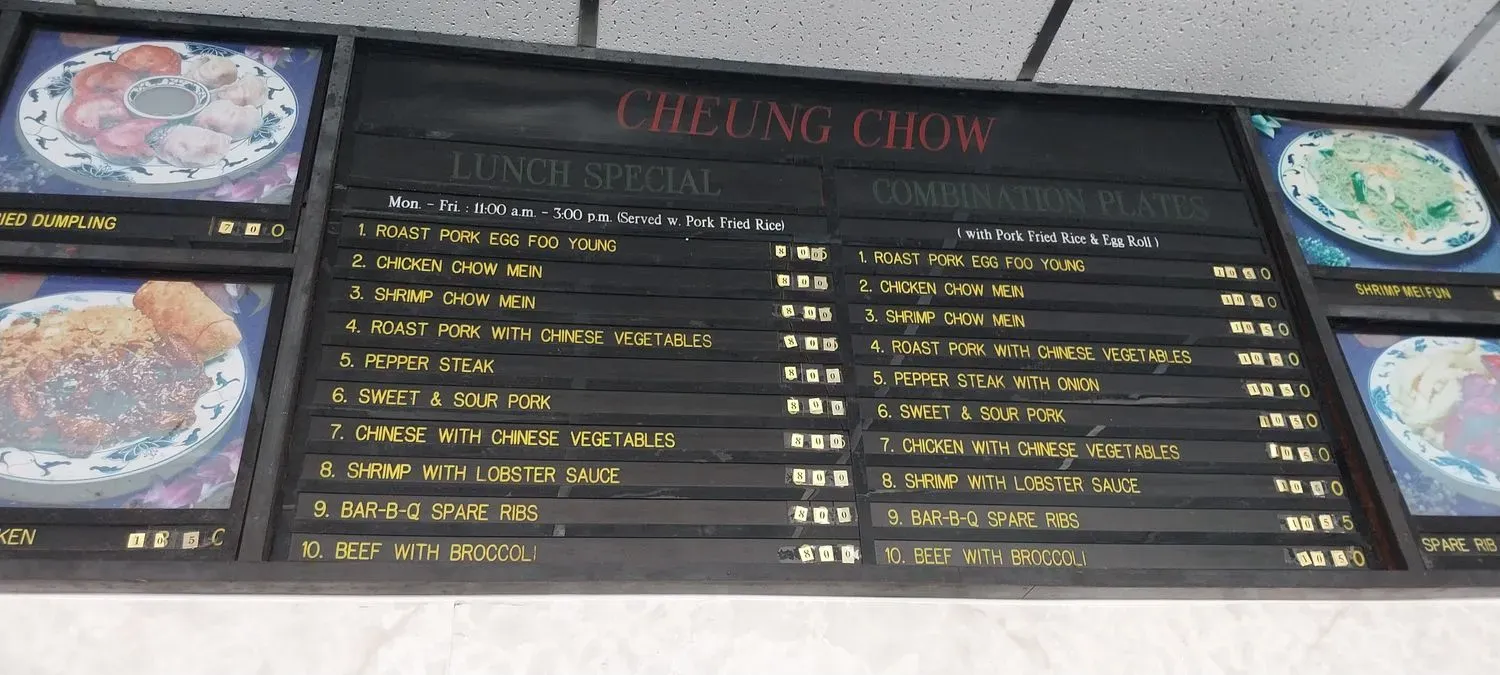 CHEUNG CHOW
LUNCH SPECIAL
Mon. - Fri. : 11:00 a.m. - 3:00 p.m. (Served w. Pork Fried Rice)
1. ROAST PORK EGG FOO YOUNG 8 0 0
2. CHICKEN CHOW MEIN 8 0 0
3. SHRIMP CHOW MEIN 8 0 0
4. ROAST PORK WITH CHINESE VEGETABLES 8 0 0
5. PEPPER STEAK 8 0 0
6. SWEET & SOUR PORK 8 0 0
7. CHINESE WITH CHINESE VEGETABLES 8 0 0
8. SHRIMP WITH LOBSTER SAUCE 8 0 0
9. BAR-B-Q SPARE RIBS 8 0 0
10. BEEF WITH BROCCOLI 8 0 0
COMBINATION PLATES
( with Pork Fried Rice & Egg Roll )
1. ROAST PORK EGG FOO YOUNG 10 5 0
2. CHICKEN CHOW MEIN 10 5 0
3. SHRIMP CHOW MEIN 10 5 0
4. ROAST PORK WITH CHINESE VEGETABLES 10 5 0
5. PEPPER STEAK WITH ONION 10 5 0
6. SWEET & SOUR PORK 10 5 0
7. CHICKEN WITH CHINESE VEGETABLES 10 5 0
8. SHRIMP WITH LOBSTER SAUCE 10 5 0
9. BAR-B-Q SPARE RIBS 10 5 5
10. BEEF WITH BROCCOLI 10 5 0
IED DUMPLING 7 0 0
KEN
SHRIMP MEI FUN
SPARE RIB